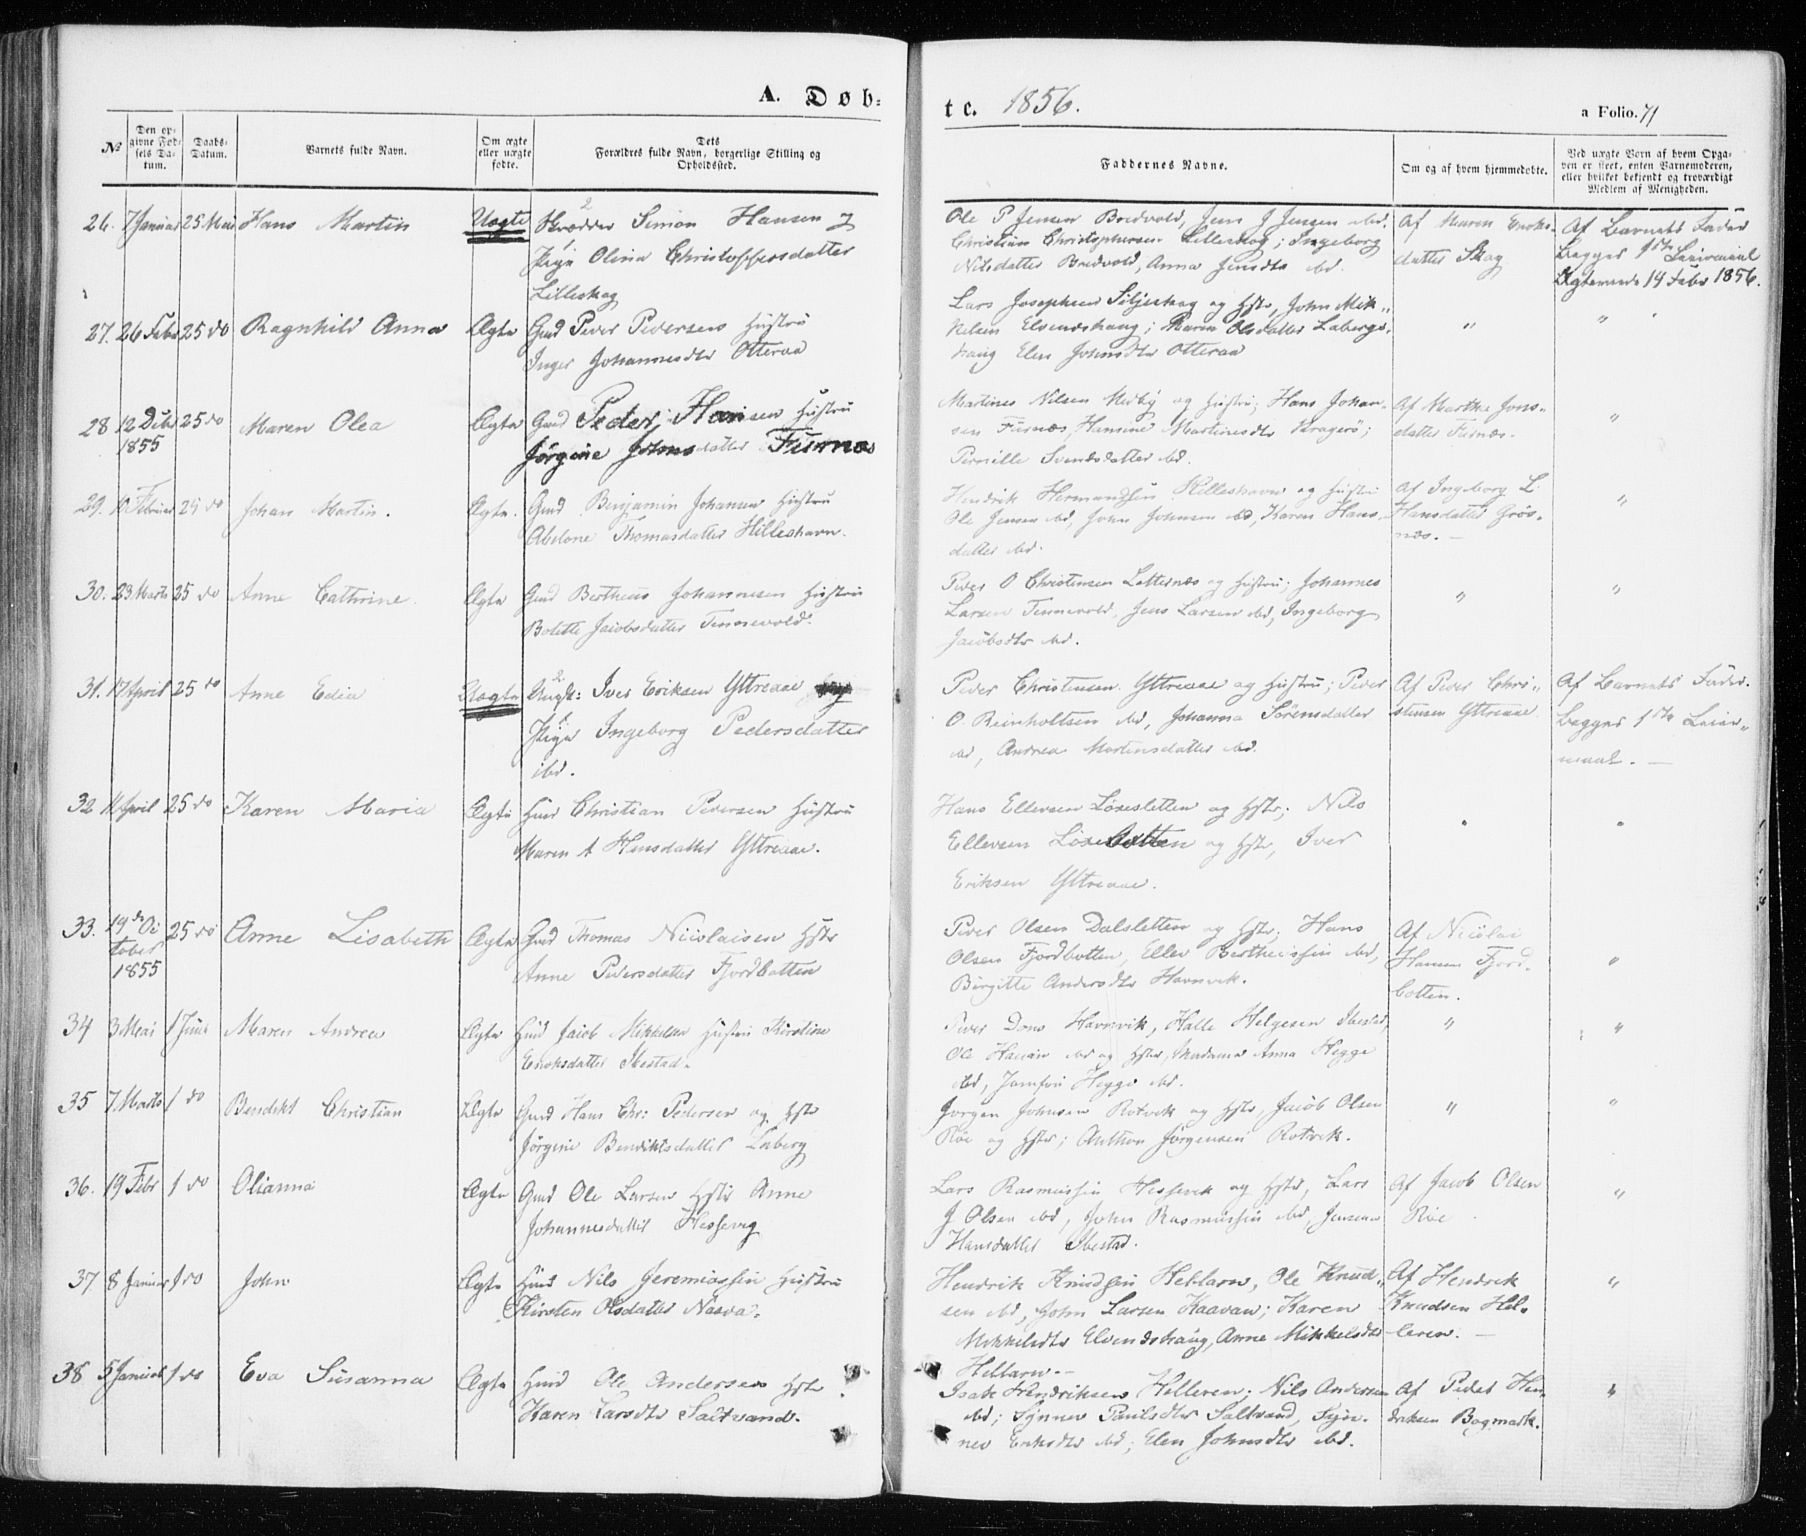 A. Døb-
te. 1856.
a Folio. 71
No
Den op-
givne Fød-
sels Da-
tum.
Daabs-
Datum.
Barnets fulde Navn.
Om ægte
eller uægte
fødte.
Dets
Forældres fulde Navn, borgerlige Stilling og
Opholdssted.
Faddernes Navne.
Om og af hvem hjemmedøbte.
Ved uægte Børn af hvem Opga-
ven er skeet, enten Barnemoderen,
eller hvilket bekjendt og troværdigt
Medlem af Menigheden.
26. 7 Januar 25 Mai Hans Martin Uægte Skrædder Simon Hansen
Pige Olina Christoffersdatter
Lilleskog
Ole P Jensen Bredvold, Jens J Jensen ibd.
Christian Christophersen Lilleskog; Ingeborg
Nilsdatter Bredvold, Anna Jensdtr ibd.
Af Maren
datter Skog
Af Barnets Fader
begges 1ste Leiermaal
14 Febr 1856.
27. 26 Febr 25 do Ragnhild Anna Ægte Gmd Peder Pedersens Hustru
Inger Johannesdtr Otteraa
Lars Josephsen Siljeskog og Hstr, John Mik-
kelsen Elvenæshaug; Maren Olsdatter Laberg-
haug Elen Johnsdtr Otteraa
" "
28 12 Debr 25 do Maren Olea Ægte Gmd Peder Hansen Hustru
1855
Jørgine Johnsdatter Furnæs
Martines Nilsen Medby og Hustru; Hans Johan-
sen Furnæs, Hansine Martinesdtr Kragerö;
Pernille Svendsdatter ibd.
Af Marthe Jons-
datter Furnæs.
"
29. 10 Februar 25 do Johan Martin. Ægte. Gmd Benjamin Johansen Hustru
Abelone Thomasdatter Hilleshavn.
Hendrik Hermandsen Hilleshavn og Hustru
Ole Jensen ibd, John Johnsen ibd, Karen Hans-
datter ibd.
Af Ingeborg L
Hansdatter Grøs-
næs.
"
30. 23 Marts 25 do Anne Cathrine. Ægte Gmd Bertheus Johannesen Hustru
Bolette Jacobsdatter Tennevold.
Peder O Christensen Lotternæs og Hustru; Johannes
Larsen Tennevold, Jens Larsen ibd, Ingeborg
Jacobsdtr ibd.
" "
31. 17 April 25 do Anne Edia Uægte Ungk: Iver Eriksen Yttreaae
Pige Ingeborg Pedersdatter
ibd.
Peder Christensen Yttreaae og Hustru; Peder
O. Reinholtsen ibd, Johanna Sörensdatter
ibd, Andrea Martinsdatter ibd.
Af Peder Chri-
stensen Yttreaae
Af Barnets Fader.
begges 1ste Leier-
maal.
32 11 April 25 do Karen Maria Ægte Huusm Christian Pedersen Hustru
Maren A Hansdatter Yttreaae.
Hans Ellevsen Løxesletten og Hstr; Nils
Ellevsen Løxebotten og Hstr, Iver
Eriksen Yttreaae.
" "
33. 19de Oc 25 do Anne Lisabeth Ægte Gmd Thomas Nicolaisen Hstr
tober
1855
Anne Pedersdatter Fjordbotten
Peder Olsen Dalsletten og Hstr; Hans
Olsen Fjordbotten, Ellev Bertheussen ibd,
Birgitte Andersdtr Havnvik.
Af Nicolai
Hansen Fjord-
botten.
"
34 3 Mai 1 Juni Maren Andrea Ægte Huusm Jacob Mikkelsen Hustru Kirstine
Enoksdatter Ibestad.
Peder Dons Havnvik, Halle Helgesen Ibestad,
Ole Hanssen ibd og Hstr, Madame Anna Hegge
ibd, Jomfru Hegge ibd.
" "
35 7 Marts 1 do Bendikt Christian Ægte Gmd Hans Chr: Pedersen og Hstr
Jörgine Bendiktsdatter Laberg
Jørgen Johnsen Rotvik og Hstr, Jacob Olsen
Röe og Hstr; Anthon Jörgensen Rotvik.
" "
36. 19 Febr 1 do Olianna Ægte Gmd Ole Larsen Hstr Anne
Johannesdatter Hessevig
Lars Rasmussen Hessevik og Hstr, Lars
J Olsen ibd, John Rasmussen ibd, Jensine
Hansdatter Ibestad.
Af Jacob Olsen
Röe
"
37 8 Januar 1 do John Ægte Huusm Nils Jeremiassen Hustru
Kirsten Olsdatter Naava.
Hendrik Knudsen Hellaren, Ole Knud-
sen ibd, John Larsen Kaavan; Karen
Mikkelsdtr Elvenæshaug, Anne Mikkelsdtr
Hellaren.
Af Hendrik
Knudsen Hel-
laren.
"
38 5 Januar 1 do Eva Susanna Ægte Huusm Ole Andersens Hstr
Karen Larsdtr Saltvand.
Isak Hendriksen Helleren; Nils Andersen
ibd; Synnev Paulsdtr Saltvand, Syn-
nev Eriksdtr ibd; Elen Johnsdtr ibd.
Af Peder Hen-
driksen Bogmark.
"